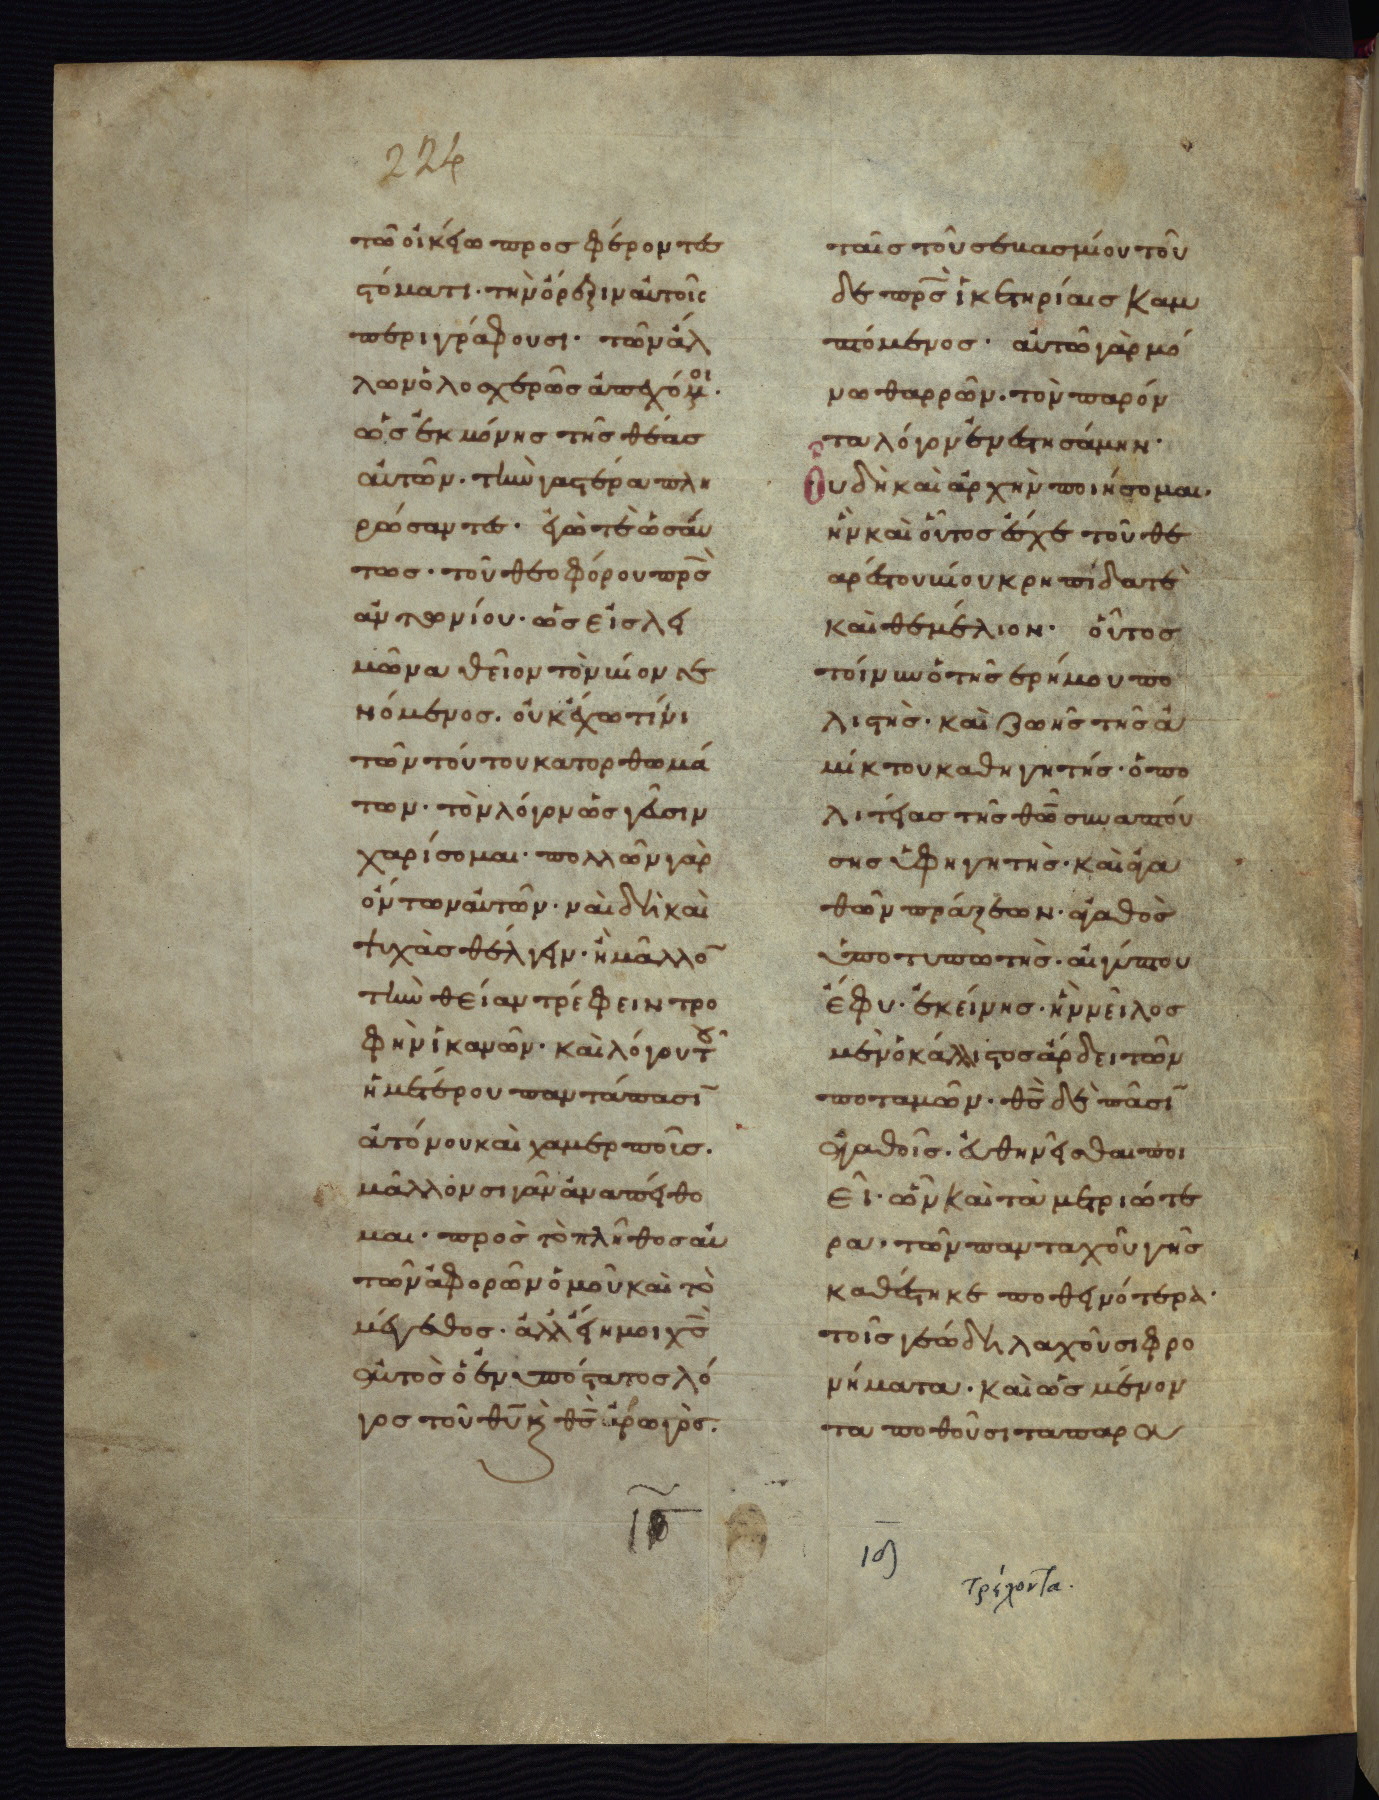 224
τῶ οἰκείω προσφέροντες
στόματι· τὴν ὄρεξιν αὐτοῖς
περιγράφουσι· τῶν ἄλ
λων ὁλοσχερῶς ἀπεχόμοι·
ὡς ἐκ μόνης τῆς θέας
αὐτῶν· τὴν γαστέρα πλη
ρώσαντες· ἐγώ τε ὡσαύ
τως· τοῦ θεοφόρου πρς
ἀντωνίου· ὡς εἰς λει
μῶνα θεῖον τὸν βίον γε
νόμενος· οὐκ ἔχω τίνι
τῶν τούτου κατορθωμά
των· τὸν λόγον ὡς γεῦσιν
χαρίσομαι· πολλῶν γὰρ
ὄντων αὐτῶν· ναὶ δὴ καὶ
ψυχὰς θέλγειν· ἢ μᾶλλο
τὴν θείαν τρέφειν τρο
φὴν ἱκανῶν· καὶ λόγου τοῦ
ἡμετέρου παντάπασι
ἀτόνου καὶ χαμερποῦς·
μᾶλλον σιγᾶν ἀναπείθο
μαι· πρὸς τὸ πλῆθος αὐ
τῶν ἀφορῶν ὁμοῦ καὶ τὸ
μέγεθος· ἀλλ' εἴη μοι χς
αὐτὸς ὁ ἐνυπόστατος λό
γος τοῦ θυ κ θς ἀρωγὸς·
ταῖς τοῦ σεβασμίου τοῦ
δε πρς ἱκετηρίαις καμ
πτόμενος· αὐτῶ γὰρ μό
νω θαρρῶν· τὸν παρόν
τα λόγον ἐνεστησάμην·
Οὗ δὴ καὶ ἀρχὴν ποιήσομαι·
ἣν καὶ οὗτος ἔσχε τοῦ θε
αρέστου βίου κρηπίδα τὲ
καὶ θεμέλιον· οὗτος
τοίνυν ὁ τῆς ἐρήμου πο
λιστὴς· καὶ ζωῆς τῆς ἀ
μίκτου καθηγητής· ὁ πο
λιτείας τῆς θῶ συναπτού
σης ὑφηγητὴς· καὶ ἀγα
θῶν πράξεων· ἀγαθὸς
ὑποτυπωτὴς· αἰγύπτου
ἔφυ· ἐκείνης· ἣν νεῖλος
μὲν ὁ κάλλιστος ἄρδει τῶν
ποταμῶν· θς δὲ πᾶσι
ἀγαθοῖς· εὐθηνεῖσθαι ποι
εῖ· ὧν καὶ τὰ μετριώτε
ρα· τῶν πανταχοῦ γῆς
καθέστηκε ποθεινότερα·
τοῖς γεώδη λαχοῦσι φρο
νήματα· καὶ ὡς μένον
τα ποθοῦσι τὰ παρα
ιδ
τρέχοντα.